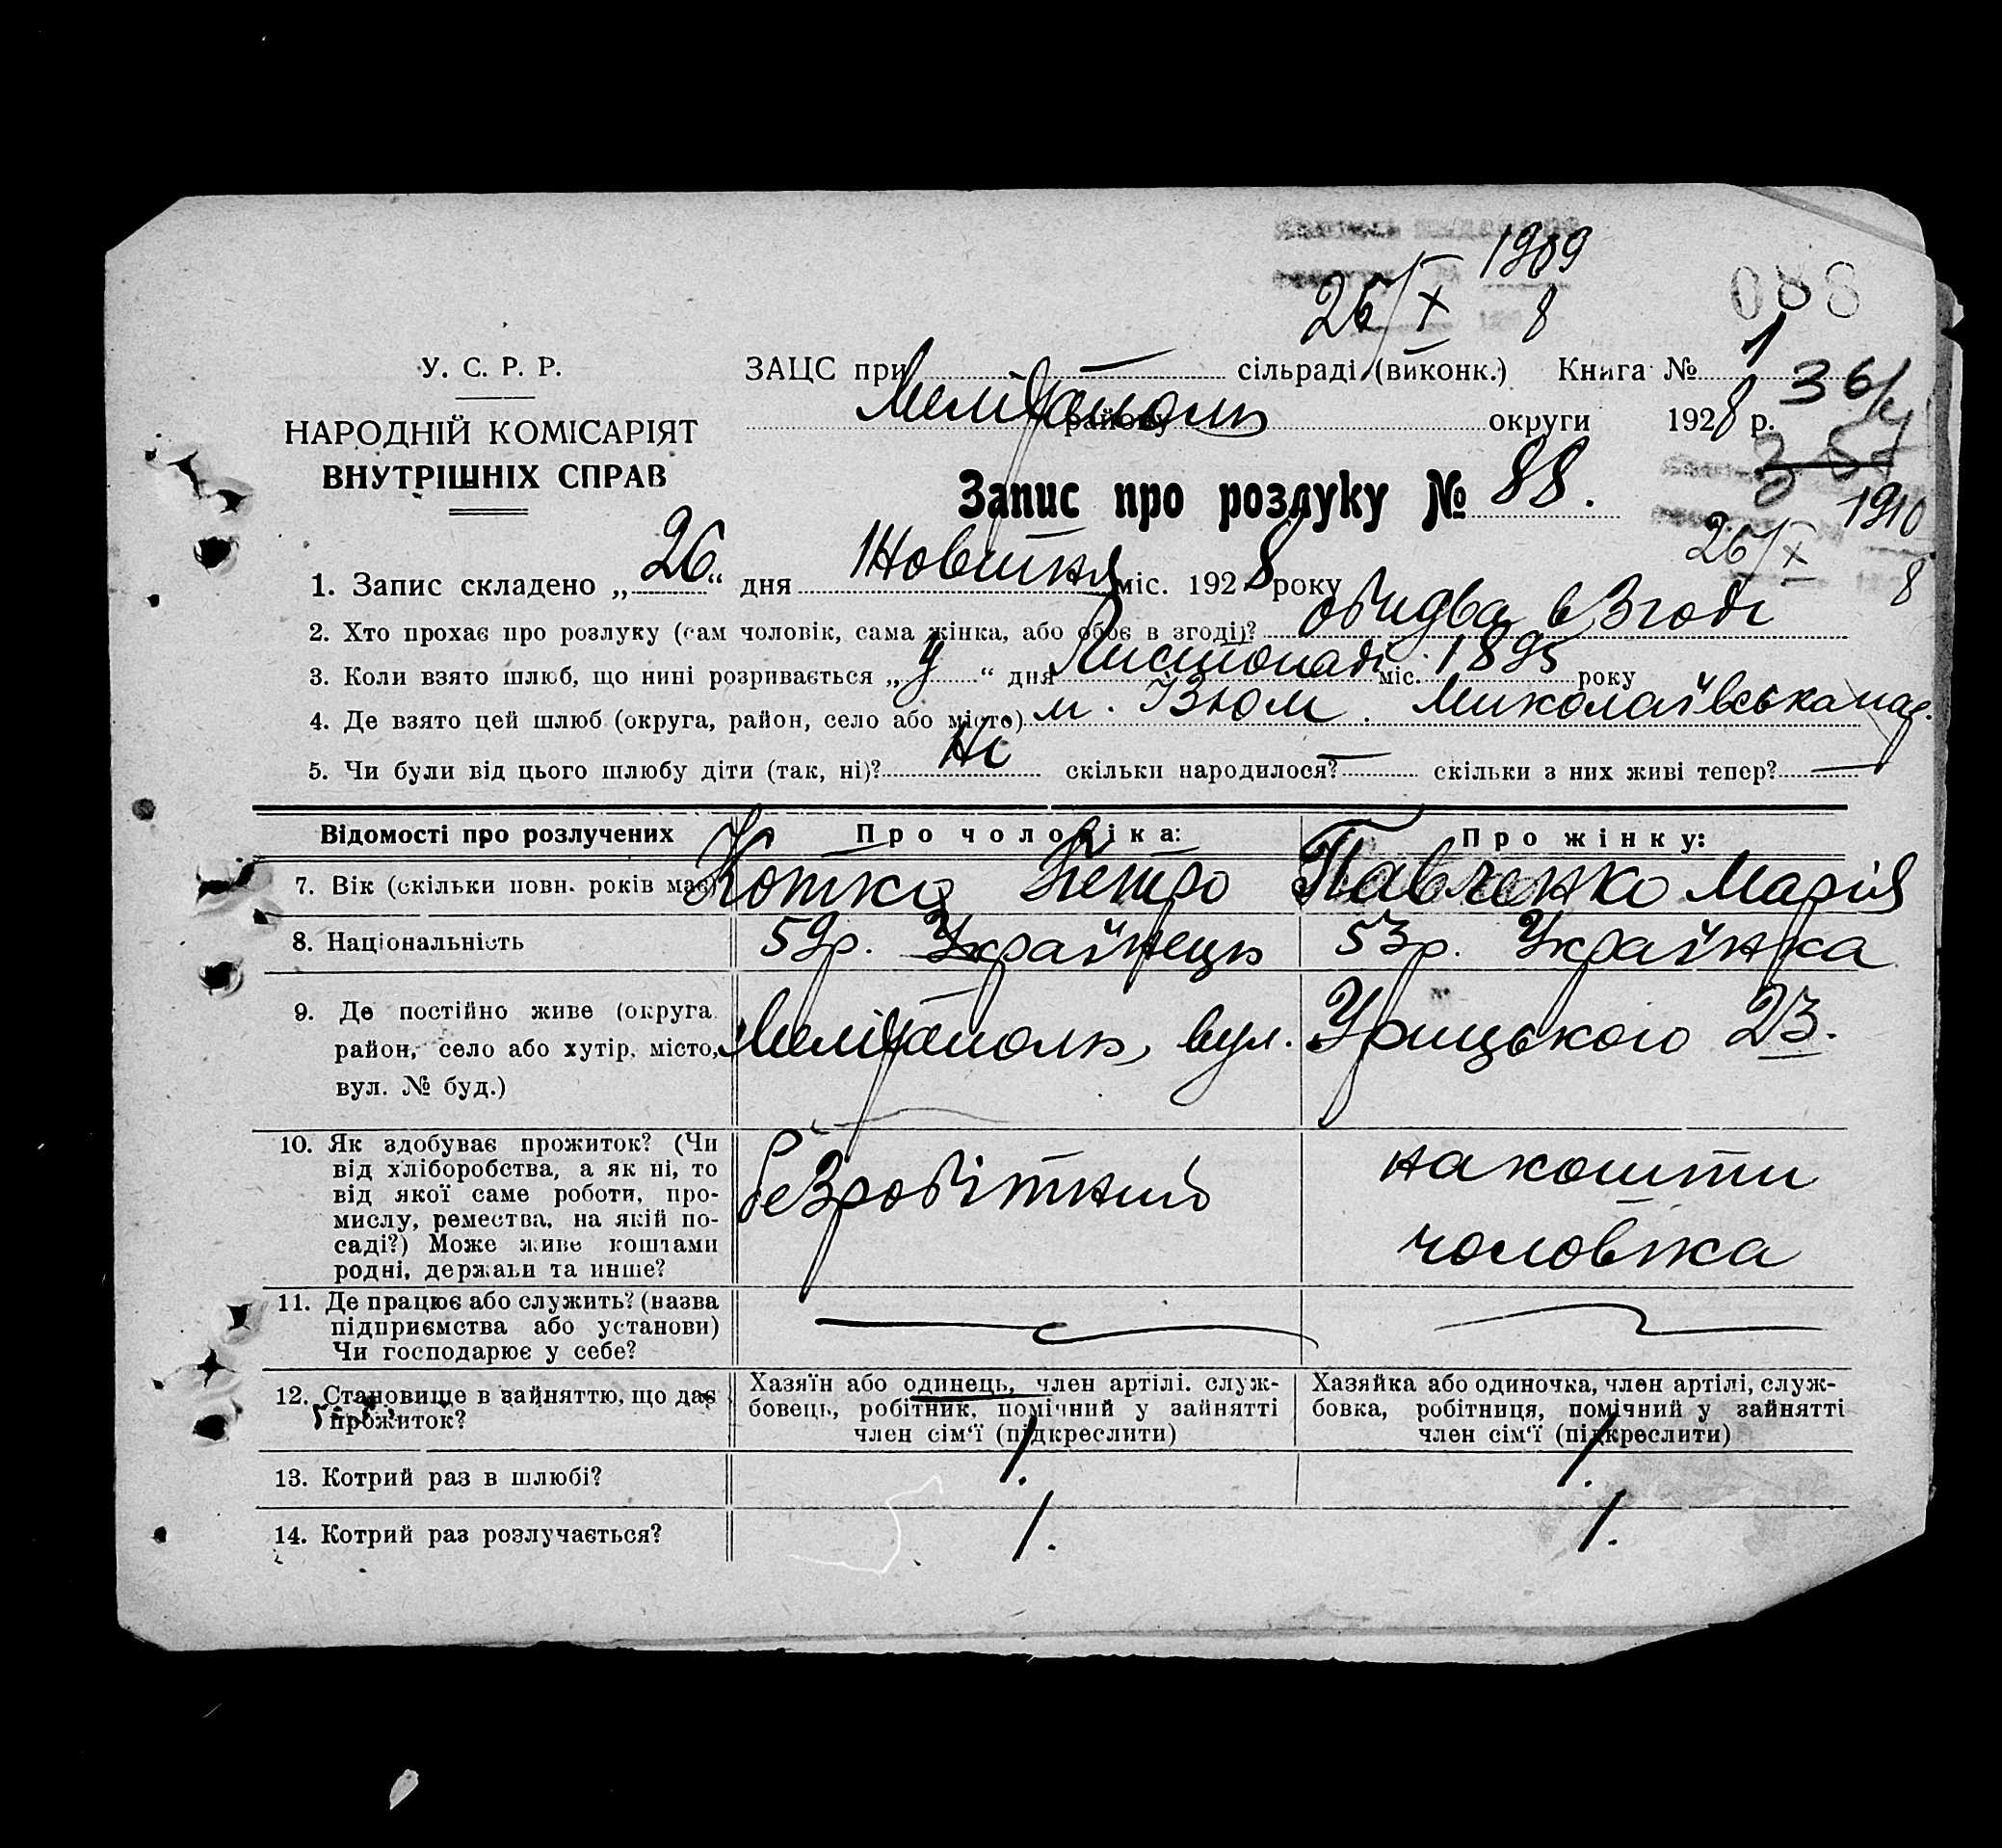 1909
26/X 8
088
У. С. Р. Р.
НАРОДНІЙ КОМІСАРІЯТ
ВНУТРІШНІХ СПРАВ
ЗАЦС при — сільраді (виконк.) Книга № 1
36/
Мелітополь району округи 1928 р.
Запис про розлуку № 88.
1910
26/X 8
1. Запис складено „26“ дня Жовтня міс. 1928 року
2. Хто прохає про розлуку (сам чоловік, сама жінка, або обоє в згоді)? обидва в згоді
3. Коли взято шлюб, що нині розривається „4“ дня Листопаді міс. 1895 року
4. Де взято цей шлюб (округа, район, село або місто) м. Ізюм. Миколаївська
5. Чи були від цього шлюбу діти (так, ні)? Ні скільки народилося? — скільки з них живі тепер? —
Відомості про розлучених Про чоловіка: Про жінку:
7. Вік (скільки повн. років має) Котко Петро Павленко Марія
8. Національність 59р. Українець 53р. Українка
9. Де постійно живе (округа, район, село або хутір, місто, вул. № буд.) Мелітополь, вул. Урицького 23.
10. Як здобуває прожиток? (Чи
від хліборобства, а як ні, то
від якої саме роботи, про-
мислу, ремества, на якій по-
саді?) Може живе коштами
родні, держави та инше?
безробітний
на кошти
чоловіка
11. Де працює або служить? (назва
підприємства або установи)
Чи господарює у себе?
12. Становище в зайняттю, що дає
прожиток?
Хазяїн або одинець, член артілі. служ-
бовець, робітник, помічний у зайнятті
член сім'ї (підкреслити)
Хазяйка або одиночка, член артілі, служ-
бовка, робітниця, помічний у зайнятті
член сім'ї (підкреслити)
13. Котрий раз в шлюбі? 1. 1.
14. Котрий раз розлучається? 1. 1.